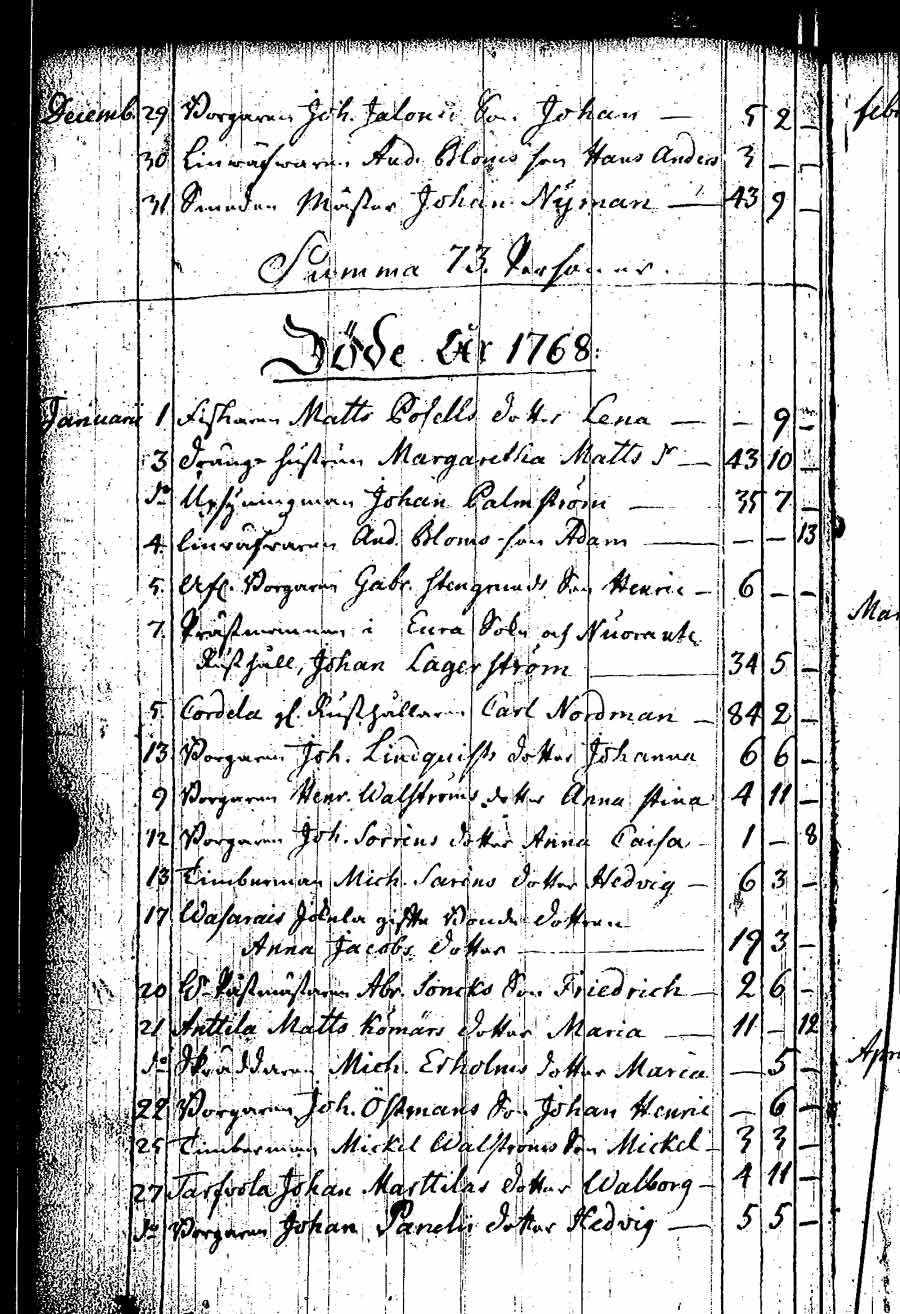 Decemb. 29 Borgaren Joh. Jalonii Son Johan — 5 2 –
30 Linwäfvaren And. Bloms son Hans Anders 3 – –
31 Smeden Mäster Johan Nyman — 43 9 –
Summa 73. Personer.
Döde År 1768:
Januarii 1 Fiskaren Matts Posells dotter Lena — – 9 –
3 Drängs hustrun Margaretha Matts dr — 43 10 –
do Upsyningman Johan Palmström — 35 7 –
4. Linwäfvaren And. Bloms son Adam — – – 13
5. Afl. Borgaren Gabr. Stengrunds Son Henric – 6 – –
7. i Eura Sokn och
Rusthåll, Johan Lagerström — 34 5 –
5. Cordela gl. Rusthållaren Carl Nordman – 84 2 –
13 Borgaren Joh. Lindquists dotter Johanna 6 6 –
9 Borgaren Henr. Walströms dotter Anna Stina 4 11 –
12 Borgaren Joh. dotter Anna Caisa – 1 – 8
13 Timberman Mich. dotter Hedvig – 6 3 –
17 gifte Bonde dottren
Anna Jacobs dotter — 19 3 –
20 Abr. Soncks Son Friedrich – 2 6 –
21 Anttila Matts dotter Maria — 11 – 12
do Skräddaren Mich. Erholms dotter Maria — – 5 –
22 Borgaren Joh. Östmans Son Johan Henric – 6 –
25 Timberman Mickel Walströms Son Mickel – 3 3 –
27 Johan Marttilas dotter Walborg – 4 11 –
do Borgaren Johan Panelii dotter Hedvig — 5 5 –